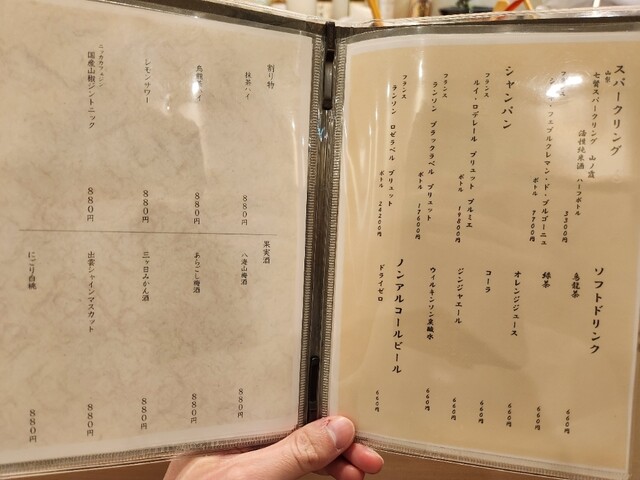 スパークリング
山梨
七賢スパークリング 山ノ霞
活性純米酒 ハーフボトル 3300円
フランス
フェブルクレマン・ド・ブルゴーニュ
ボトル 7700円
シャンパン
フランス
ルイ・ロデレール ブリュット プルミエ
ボトル 19800円
フランス
ランソン ブラックラベル ブリュット
ボトル 17600円
フランス
ランソン ロゼラベル ブリュット
ボトル 24200円
ソフトドリンク
烏龍茶 660円
緑茶 660円
オレンジジュース 660円
コーラ 660円
ジンジャエール 660円
ウィルキンソン炭酸水 660円
ノンアルコールビール
ドライゼロ 660円
割り物
抹茶ハイ 880円
烏龍ハイ 880円
レモンサワー 880円
ニッカカフェジン
国産山椒ジントニック 880円
果実酒
八海山梅酒 880円
あらごし梅酒 880円
三ヶ日みかん酒 880円
出雲シャインマスカット 880円
にごり白桃 880円